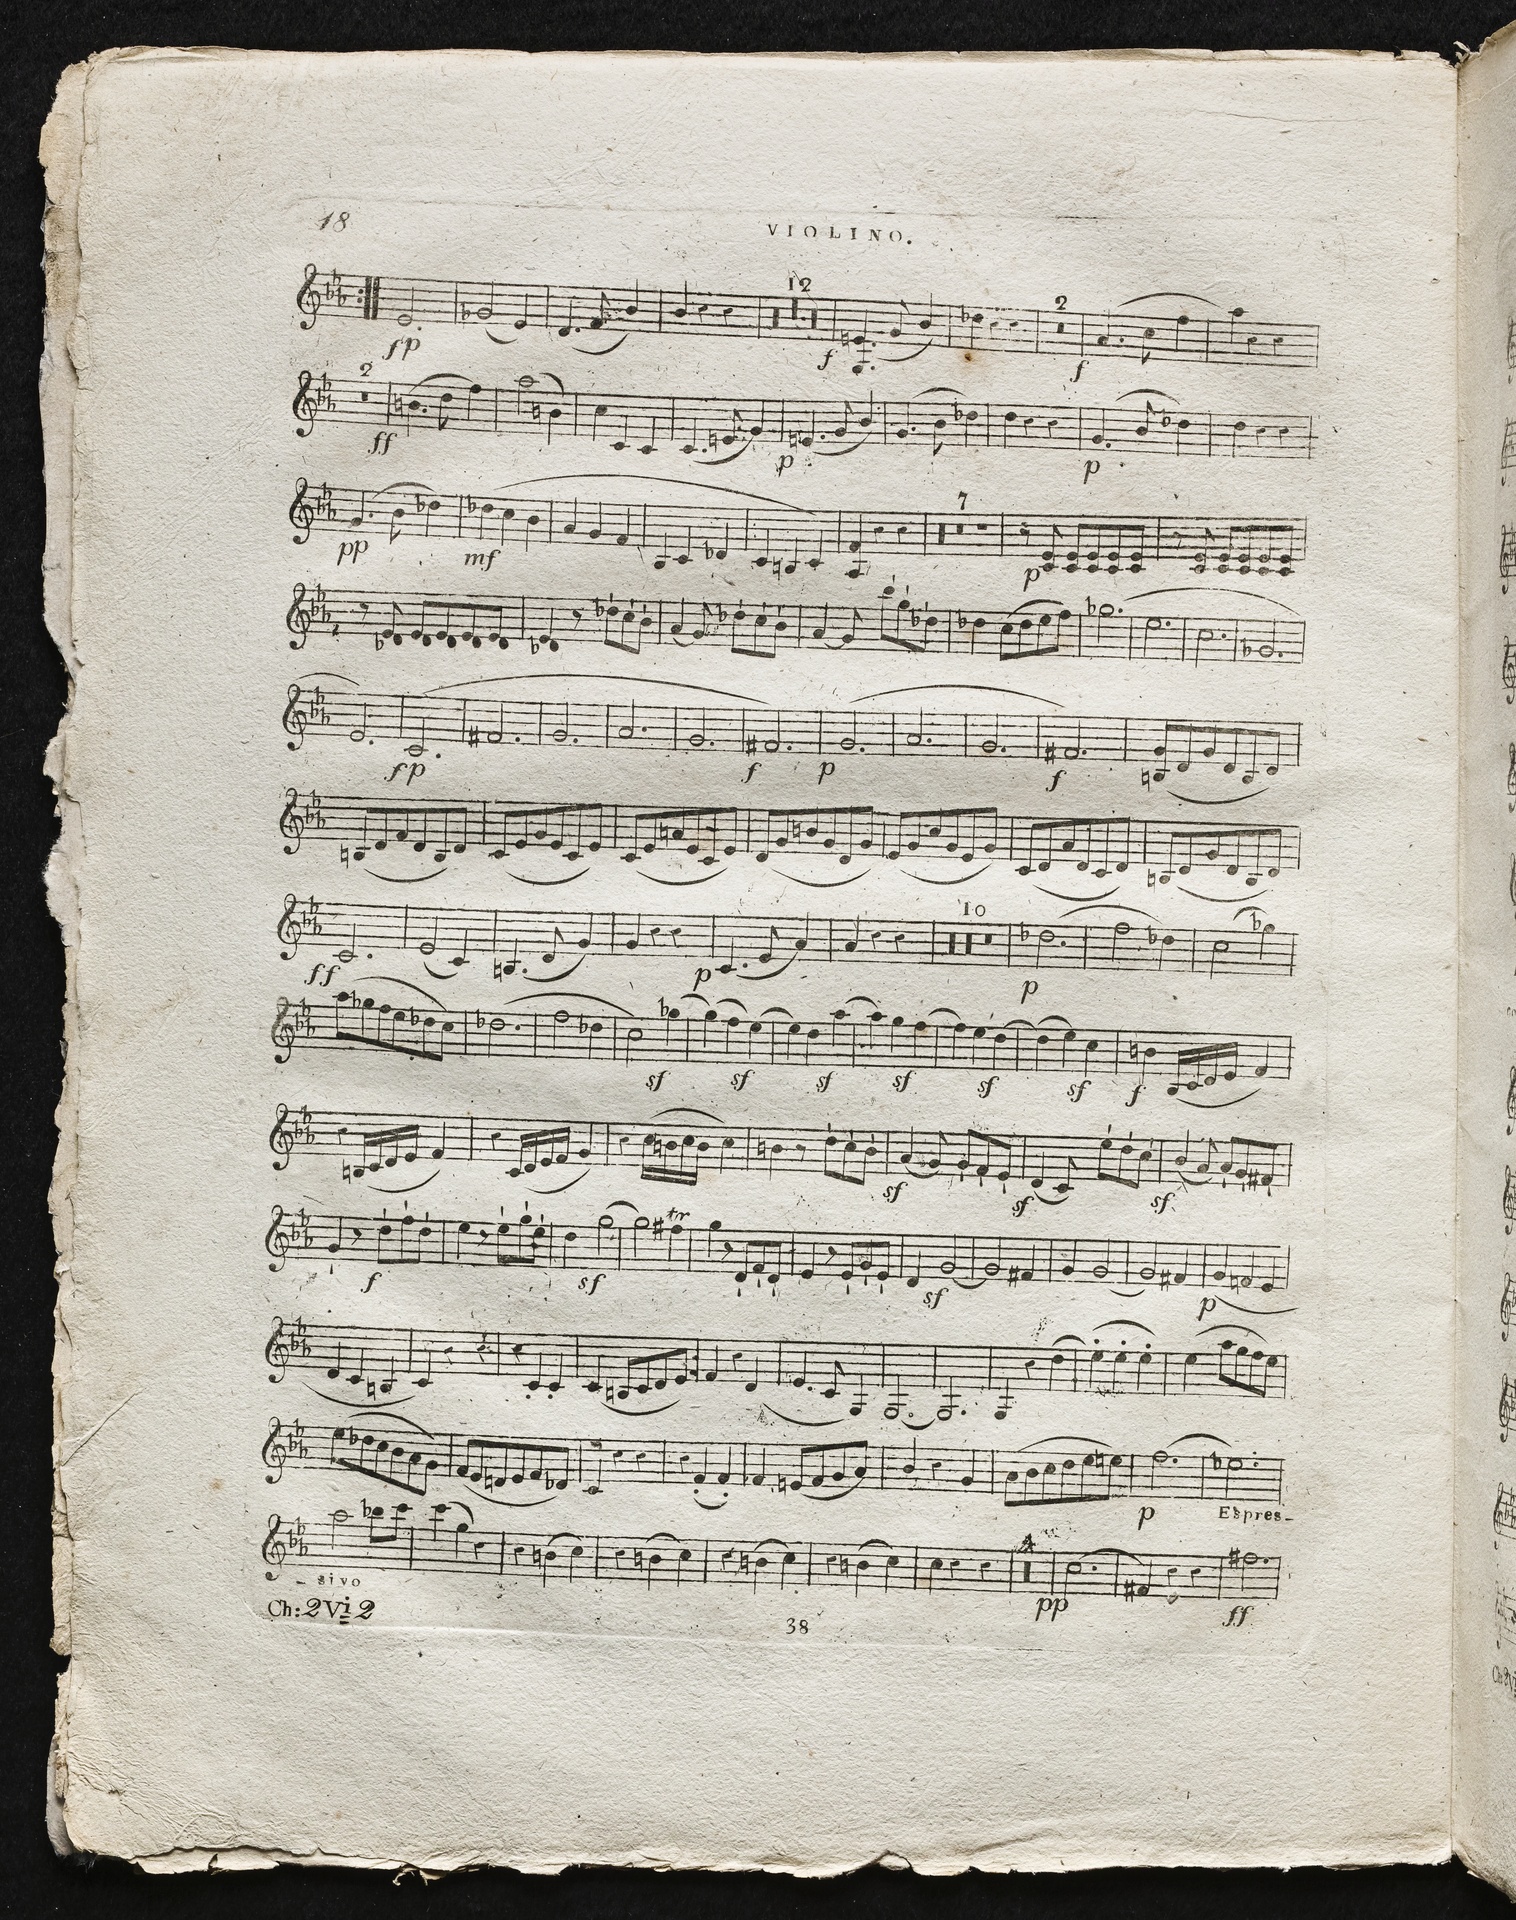 18
VIOLINO.
12
2
fp
f
f
2
ff
p
p
7
pp
mf
p
fp
f
p
f
10
ff
p
p
sf
sf
sf
sf
sf
sf
f
sf
sf
sf
tr
f
sf
sf
p
p
Espres-
- sivo
pp
ff
Ch: 2 Vi 2
38